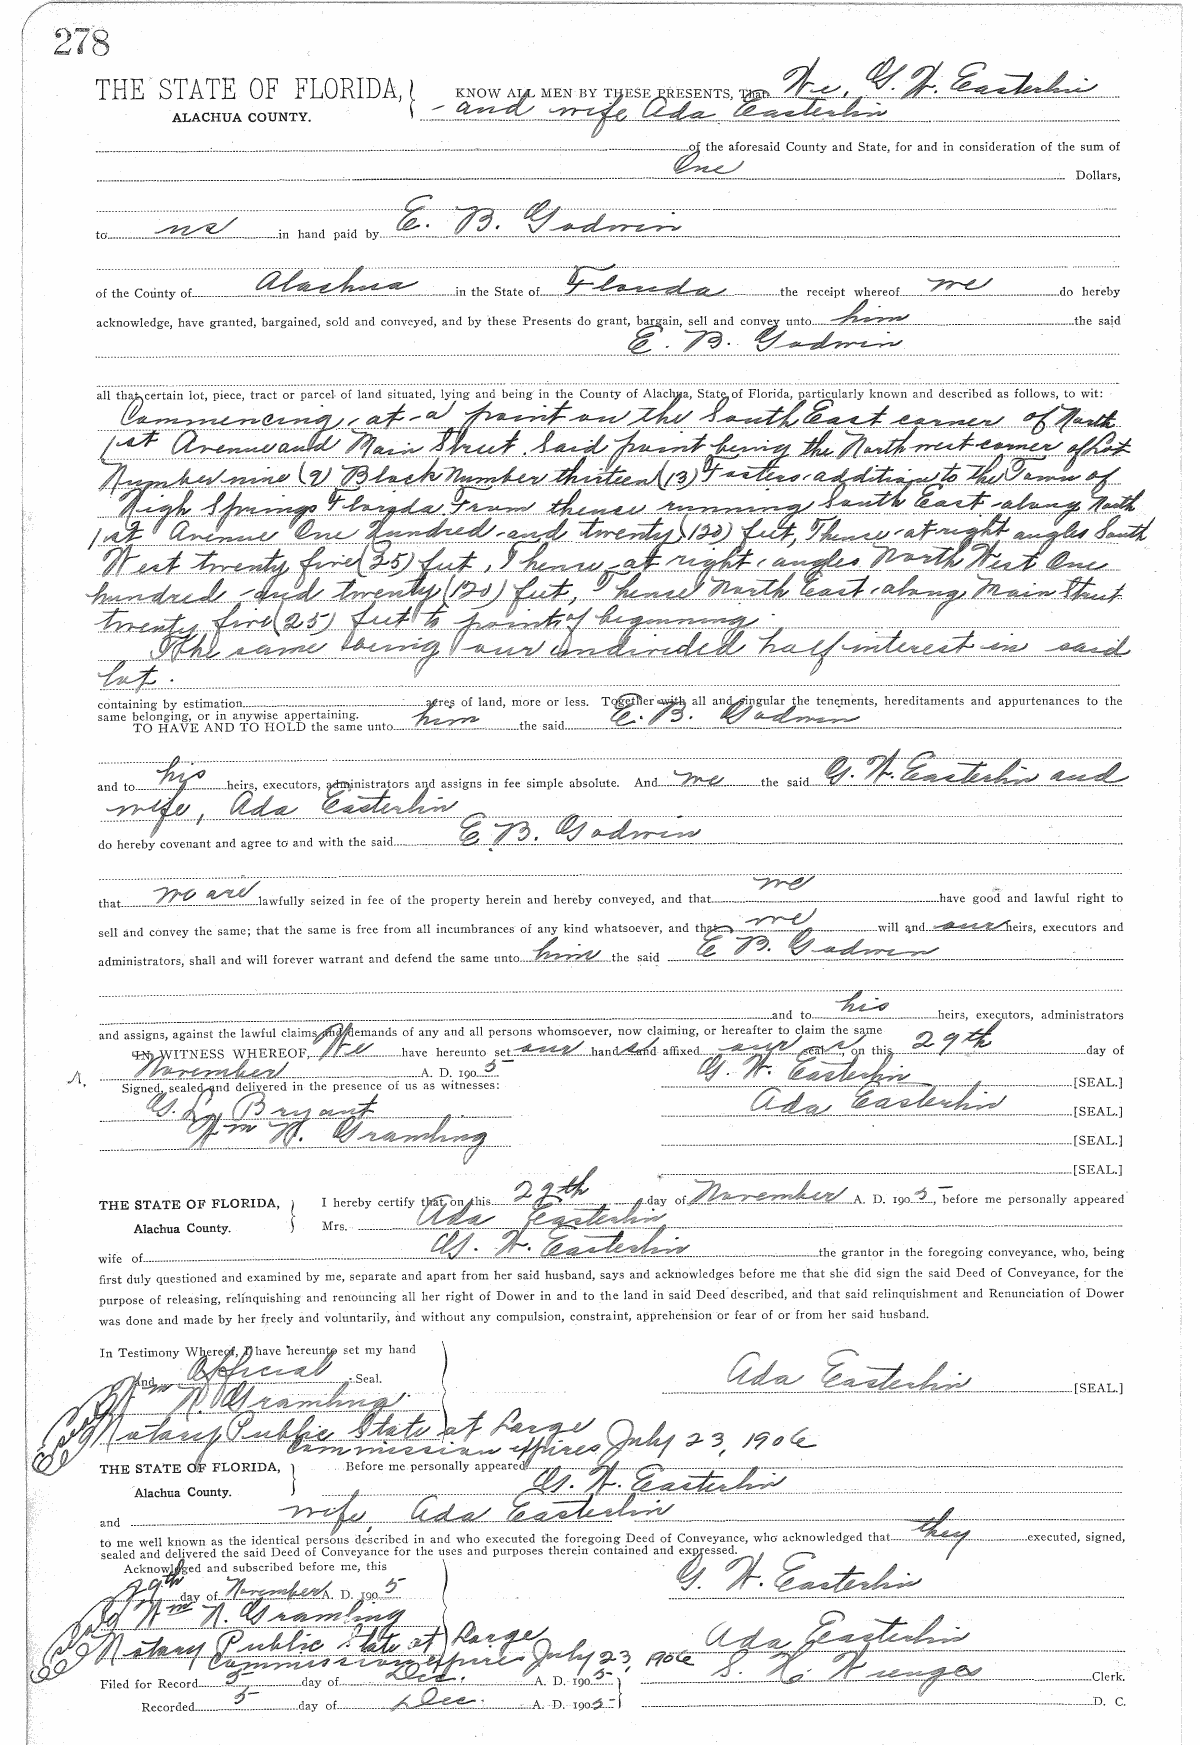 278
THE STATE OF FLORIDA, KNOW ALL MEN BY THESE PRESENTS, That We, G. W. Easterlin
ALACHUA COUNTY. and wife Ada Easterlin
of the aforesaid County and State, for and in consideration of the sum of
One Dollars,
to us in hand paid by E. B. Godwin
of the County of Alachua in the State of Florida the receipt whereof we do hereby
acknowledge, have granted, bargained, sold and conveyed, and by these Presents do grant, bargain, sell and convey unto him the said
E. B. Godwin
all that certain lot, piece, tract or parcel of land situated, lying and being in the County of Alachua, State of Florida, particularly known and described as follows, to wit:
Commencing at a point on the South East corner of North
1st Avenue and Main Street. Said point being the North west corner of Lot
Number nine (9) Block Number thirteen (13) Fosters addition to the Town of
High Springs Florida From thense running South East along North
1st Avenue One Hundred and twenty (120) feet, Thense at right angles South
West twenty five (25) feet, Thense at right angles North West One
hundred and twenty (120) feet, Thense North East along Main Street
twenty five (25) feet to point of beginning
The same being our undivided half interest in said
lot.
containing by estimation acres of land, more or less. Together with all and singular the tenements, hereditaments and appurtenances to the
same belonging, or in anywise appertaining.
TO HAVE AND TO HOLD the same unto him the said E. B. Godwin
and to his heirs, executors, administrators and assigns in fee simple absolute. And we the said G. W. Easterlin and
wife, Ada Easterlin
do hereby covenant and agree to and with the said E. B. Godwin
that we are lawfully seized in fee of the property herein and hereby conveyed, and that we have good and lawful right to
sell and convey the same; that the same is free from all incumbrances of any kind whatsoever, and that we will and our heirs, executors and
administrators, shall and will forever warrant and defend the same unto him the said E B. Godwin
and to his heirs, executors, administrators
and assigns, against the lawful claims and demands of any and all persons whomsoever, now claiming, or hereafter to claim the same
IN WITNESS WHEREOF, We have hereunto set our hands and affixed our seals, on this 29th day of
November A. D. 1905 G. W. Easterlin [SEAL.]
Signed, sealed and delivered in the presence of us as witnesses:
G. Lg Bryant Ada Easterlin [SEAL.]
Wm N. Gramling [SEAL.]
[SEAL.]
THE STATE OF FLORIDA, I hereby certify that on this 29th day of November A. D. 1905, before me personally appeared
Alachua County. Mrs. Ada Easterlin
wife of G. W. Easterlin the grantor in the foregoing conveyance, who, being
first duly questioned and examined by me, separate and apart from her said husband, says and acknowledges before me that she did sign the said Deed of Conveyance, for the
purpose of releasing, relinquishing and renouncing all her right of Dower in and to the land in said Deed described, and that said relinquishment and Renunciation of Dower
was done and made by her freely and voluntarily, and without any compulsion, constraint, apprehension or fear of or from her said husband.
In Testimony Whereof, I have hereunto set my hand
And Official Seal. Ada Easterlin [SEAL.]
Wm N. Gramling
Notary Public State at Large
Commission expires July 23, 1906
THE STATE OF FLORIDA, Before me personally appeared G. W. Easterlin
Alachua County.
and wife, Ada Easterlin
to me well known as the identical persons described in and who executed the foregoing Deed of Conveyance, who acknowledged that they executed, signed,
sealed and delivered the said Deed of Conveyance for the uses and purposes therein contained and expressed.
Acknowledged and subscribed before me, this G. W. Easterlin
29th day of November A. D. 1905
Wm N. Gramling
Notary Public State at Large Ada Easterlin
Commission expires July 23, 1906
Filed for Record 5 day of Dec. A. D. 1905 S. H. Wienges Clerk.
Recorded 5 day of Dec. A. D. 1905 D. C.